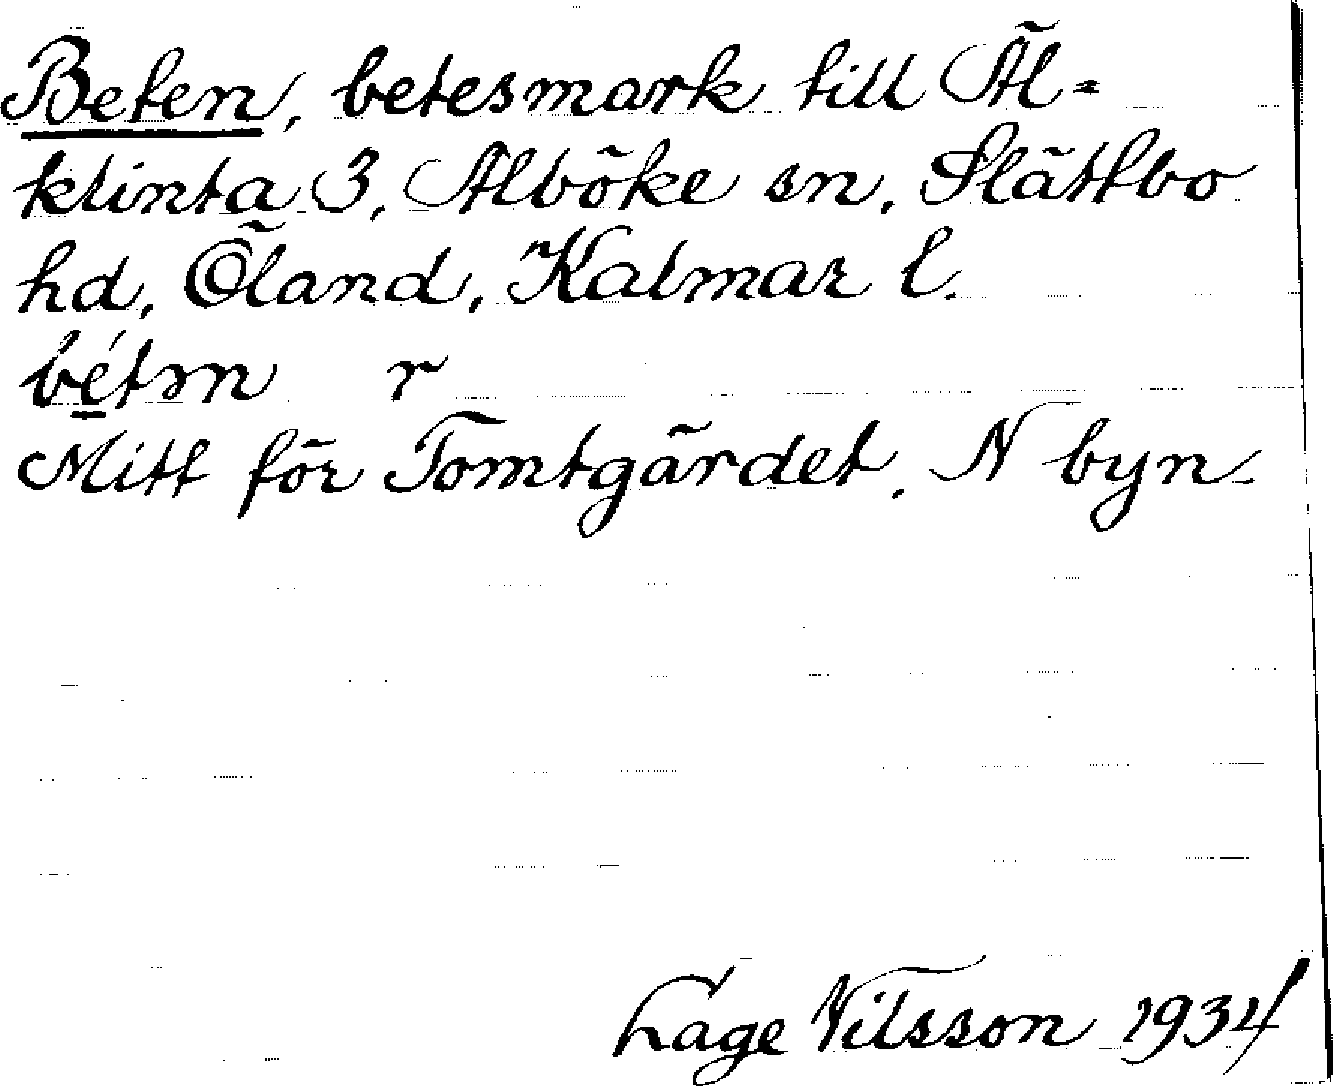 Beten, betesmark till Äl=
klinta 3, Alböke sn, Slättbo
hd, Öland, Kalmar l.
bétən r
Mitt för Tomtgärdet, N byn.
Lage Nilsson 1934